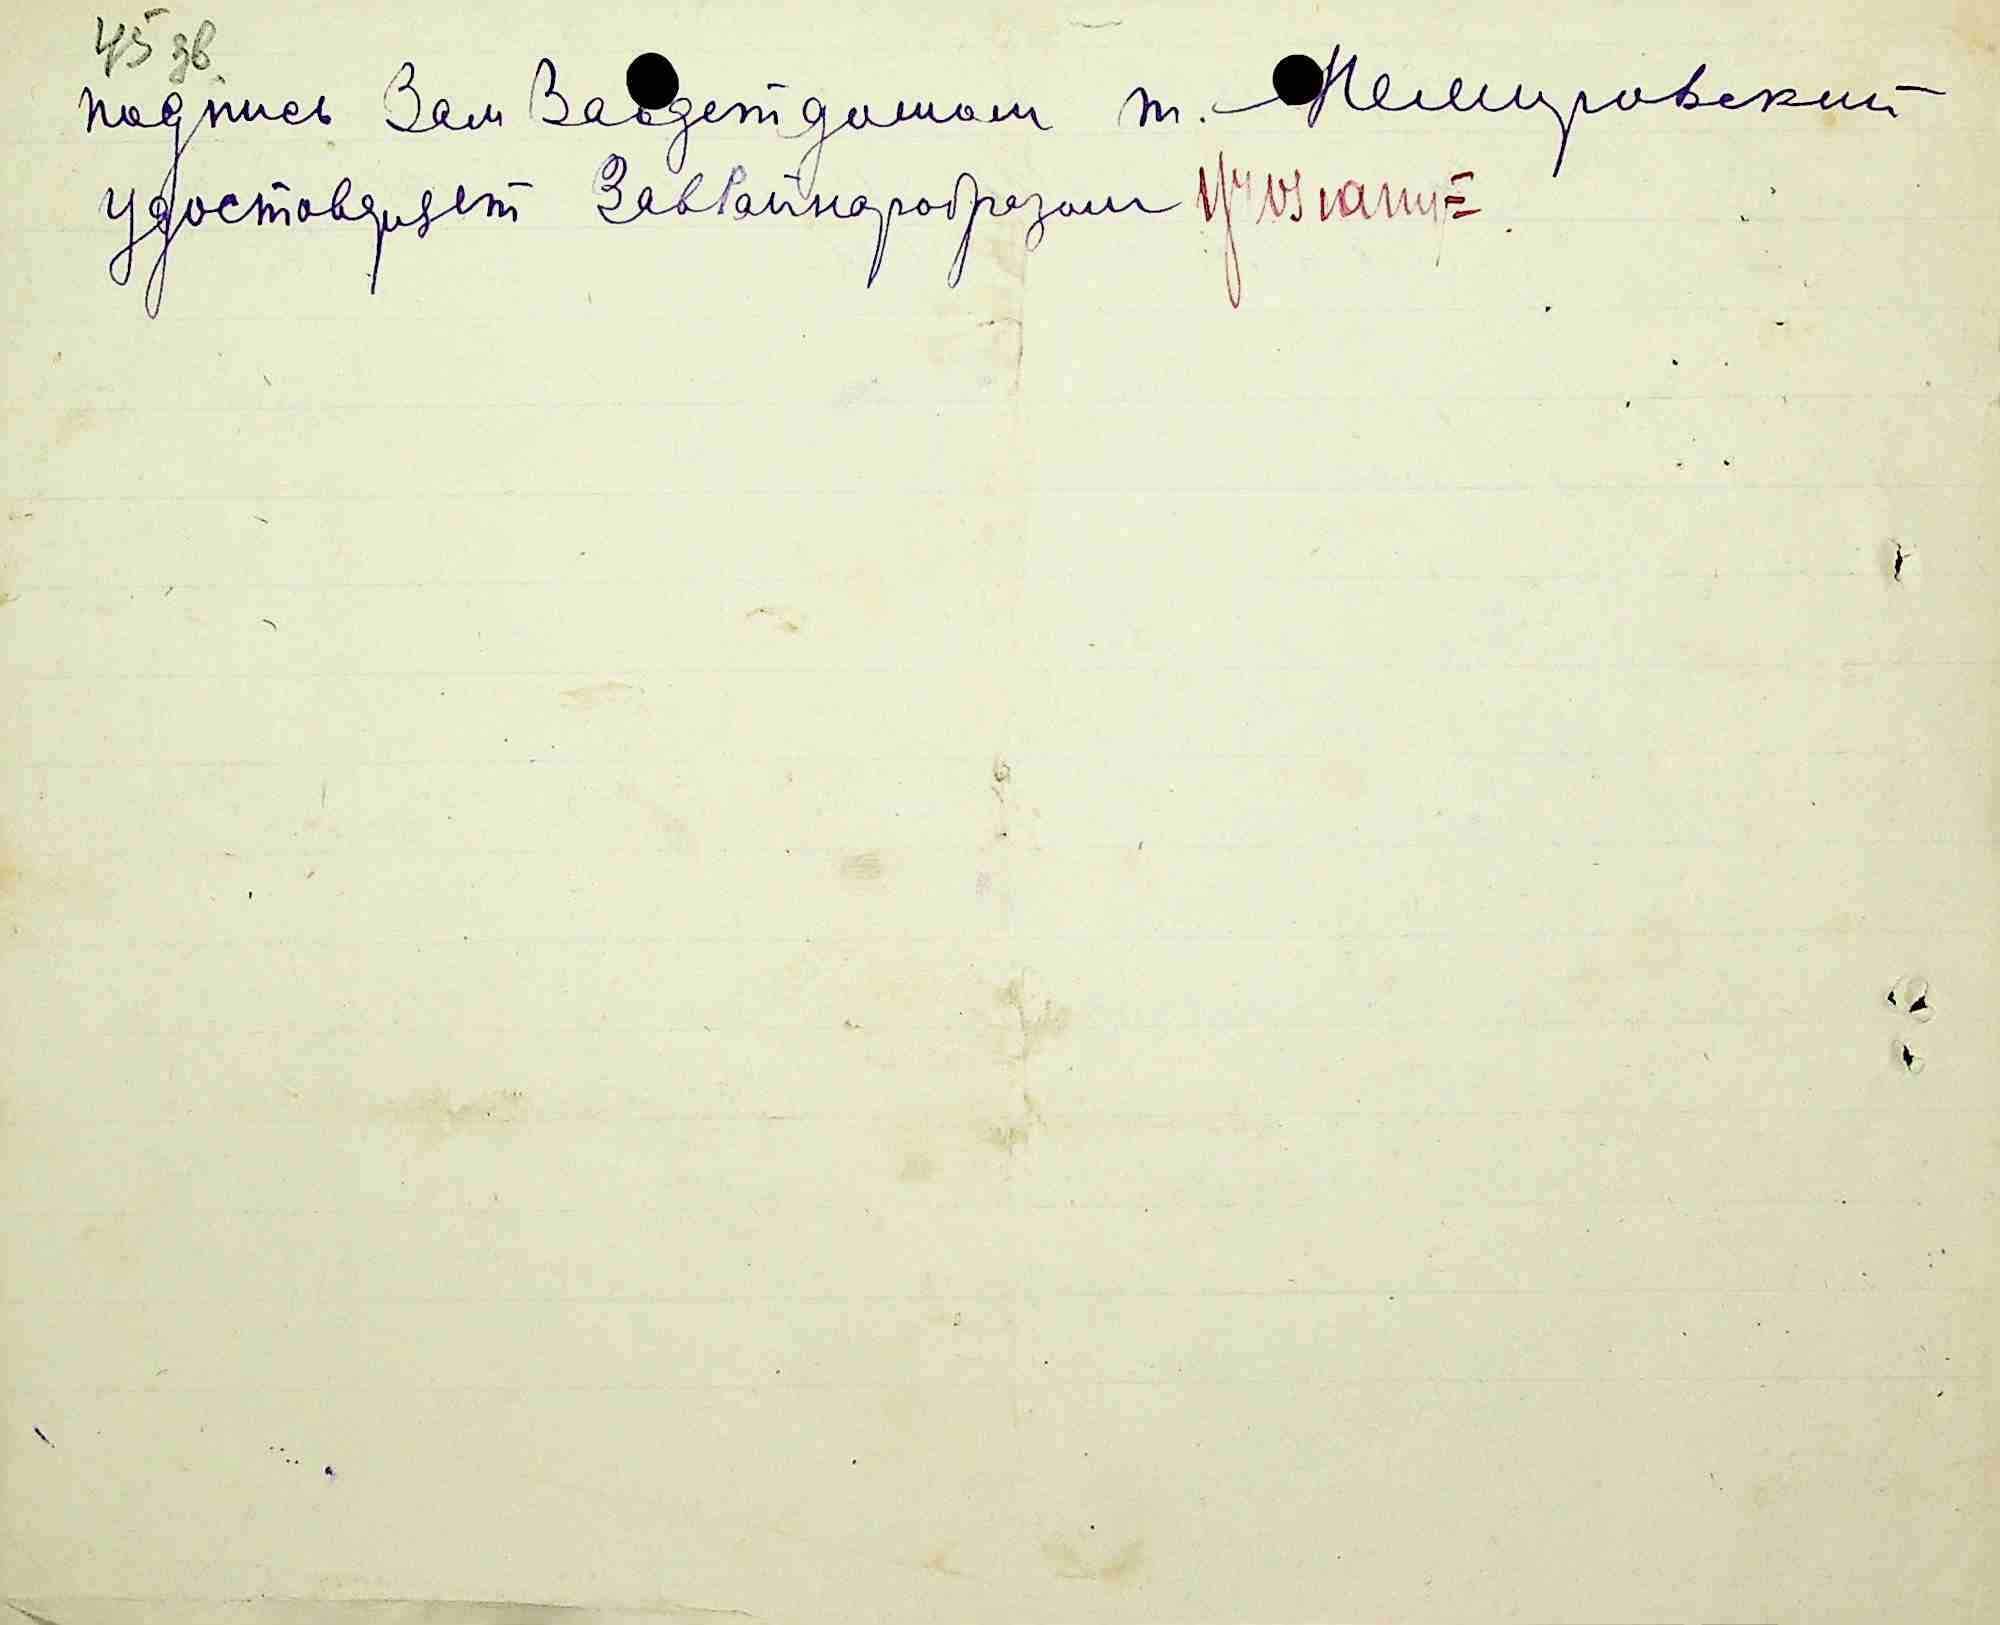 45 дв
подпись Зам Завдетдомом т. Немировский
удостоверяет ЗавРайнаробразом